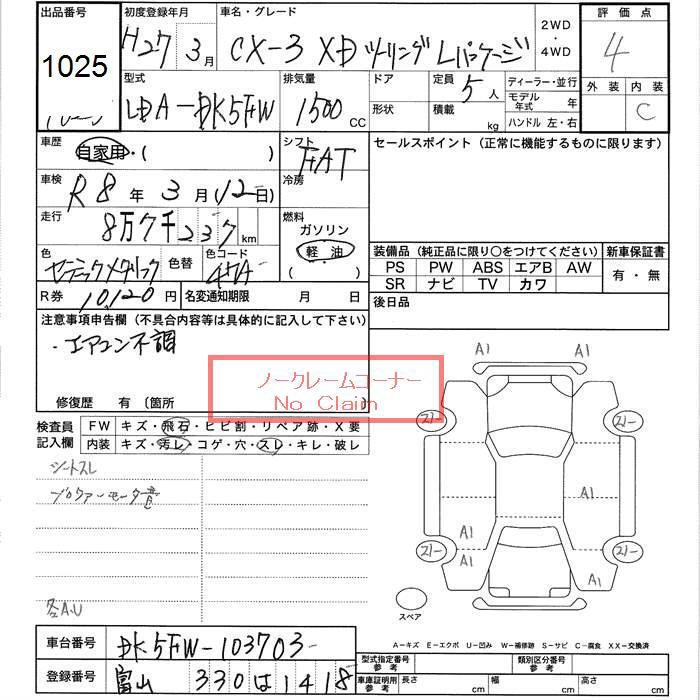 出品番号 初度登録年月 車名・グレード 2WD ・ 4WD 評価点
1025 H27 3月 CX-3 XD ツーリング Lパッケージ 4
型式 排気量 ドア 定員 5人 ディーラー・並行 外装 内装
LDA-DK5FW 1500 CC 形状 積載 kg モデル年式 年 C
ハンドル 左・右
車歴 自家用・( ) シフト FAT セールスポイント (正常に機能するものに限ります)
車検 R8年3月(12日) 冷房
走行 8万7千237km 燃料 ガソリン
軽油
( )
色 セラミックメタリック 色替 色コード 47A
装備品 (純正品に限り○をつけてください) 新車保証書
PS PW ABS エアB AW 有・無
SR ナビ TV カワ
R券 10,120円 名変通知期限 月 日 後日品
注意事項申告欄 (不具合内容等は具体的に記入して下さい)
・エアコン不調
ノークレームコーナー
No Claim
修復歴 有 〔箇所 〕
検査員記入欄 FW キズ・飛石・ヒビ割・リペア跡・X要
内装 キズ・汚レ・コゲ・穴・スレ・キレ・破レ
シートスレ
ブロワーモーター音
各A.U
A1 A1
21- 21-
A1
A1
21- 21-
A1 A1
A1
スペア
A-キズ E-エクボ U-凹み W-補修跡 S-サビ C-腐食 XX-交換済
車台番号 DK5FW-103703
登録番号 富山 330 は 1418
型式指定番号 参考 類別区分番号 参考
車庫証明用 参考 長さ cm 幅 cm 高さ cm